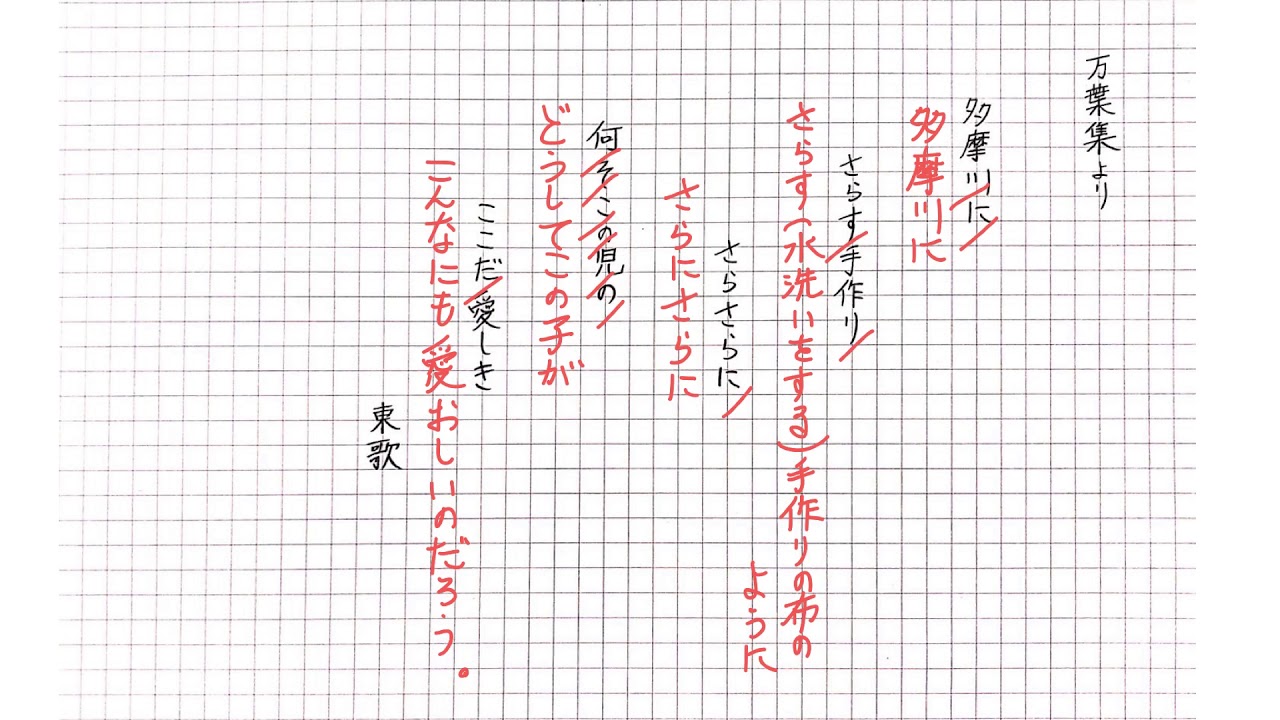 万葉集より
多摩川に
多摩川に
さらす手作り
さらす(水洗いをする)手作りの布の
ように
さらさらに
さらにさらに
何そこの児の
どうしてこの子が
ここだ愛しき
こんなにも愛おしいのだろう。
東歌